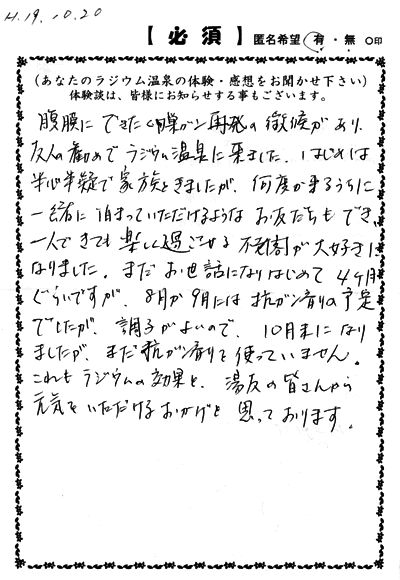 H.19. 10.20
【必須】 匿名希望 有・無 ○印
(あなたのラジウム温泉の体験・感想をお聞かせ下さい)
体験談は、皆様にお知らせする事もございます。
腹膜にできた卵巣ガン再発の徴候があり、
友人の勧めでラジウム温泉に来ました。はじめは
半心半疑で家族ときましたが、何度か来るうちに
一緒に泊まっていただけるようなお友だちもでき、
一人できても楽しく過ごせる 不老閣が大好きに
なりました。まだお世話になりはじめて 4ヶ月
ぐらいですが、8月か9月には抗ガン剤の予定
でしたが、調子がよいので、10月末になり
ましたが、まだ抗ガン剤を使っていません。
これもラジウムの効果と、湯友の皆さんから
元気をいただけるおかげと思っております。